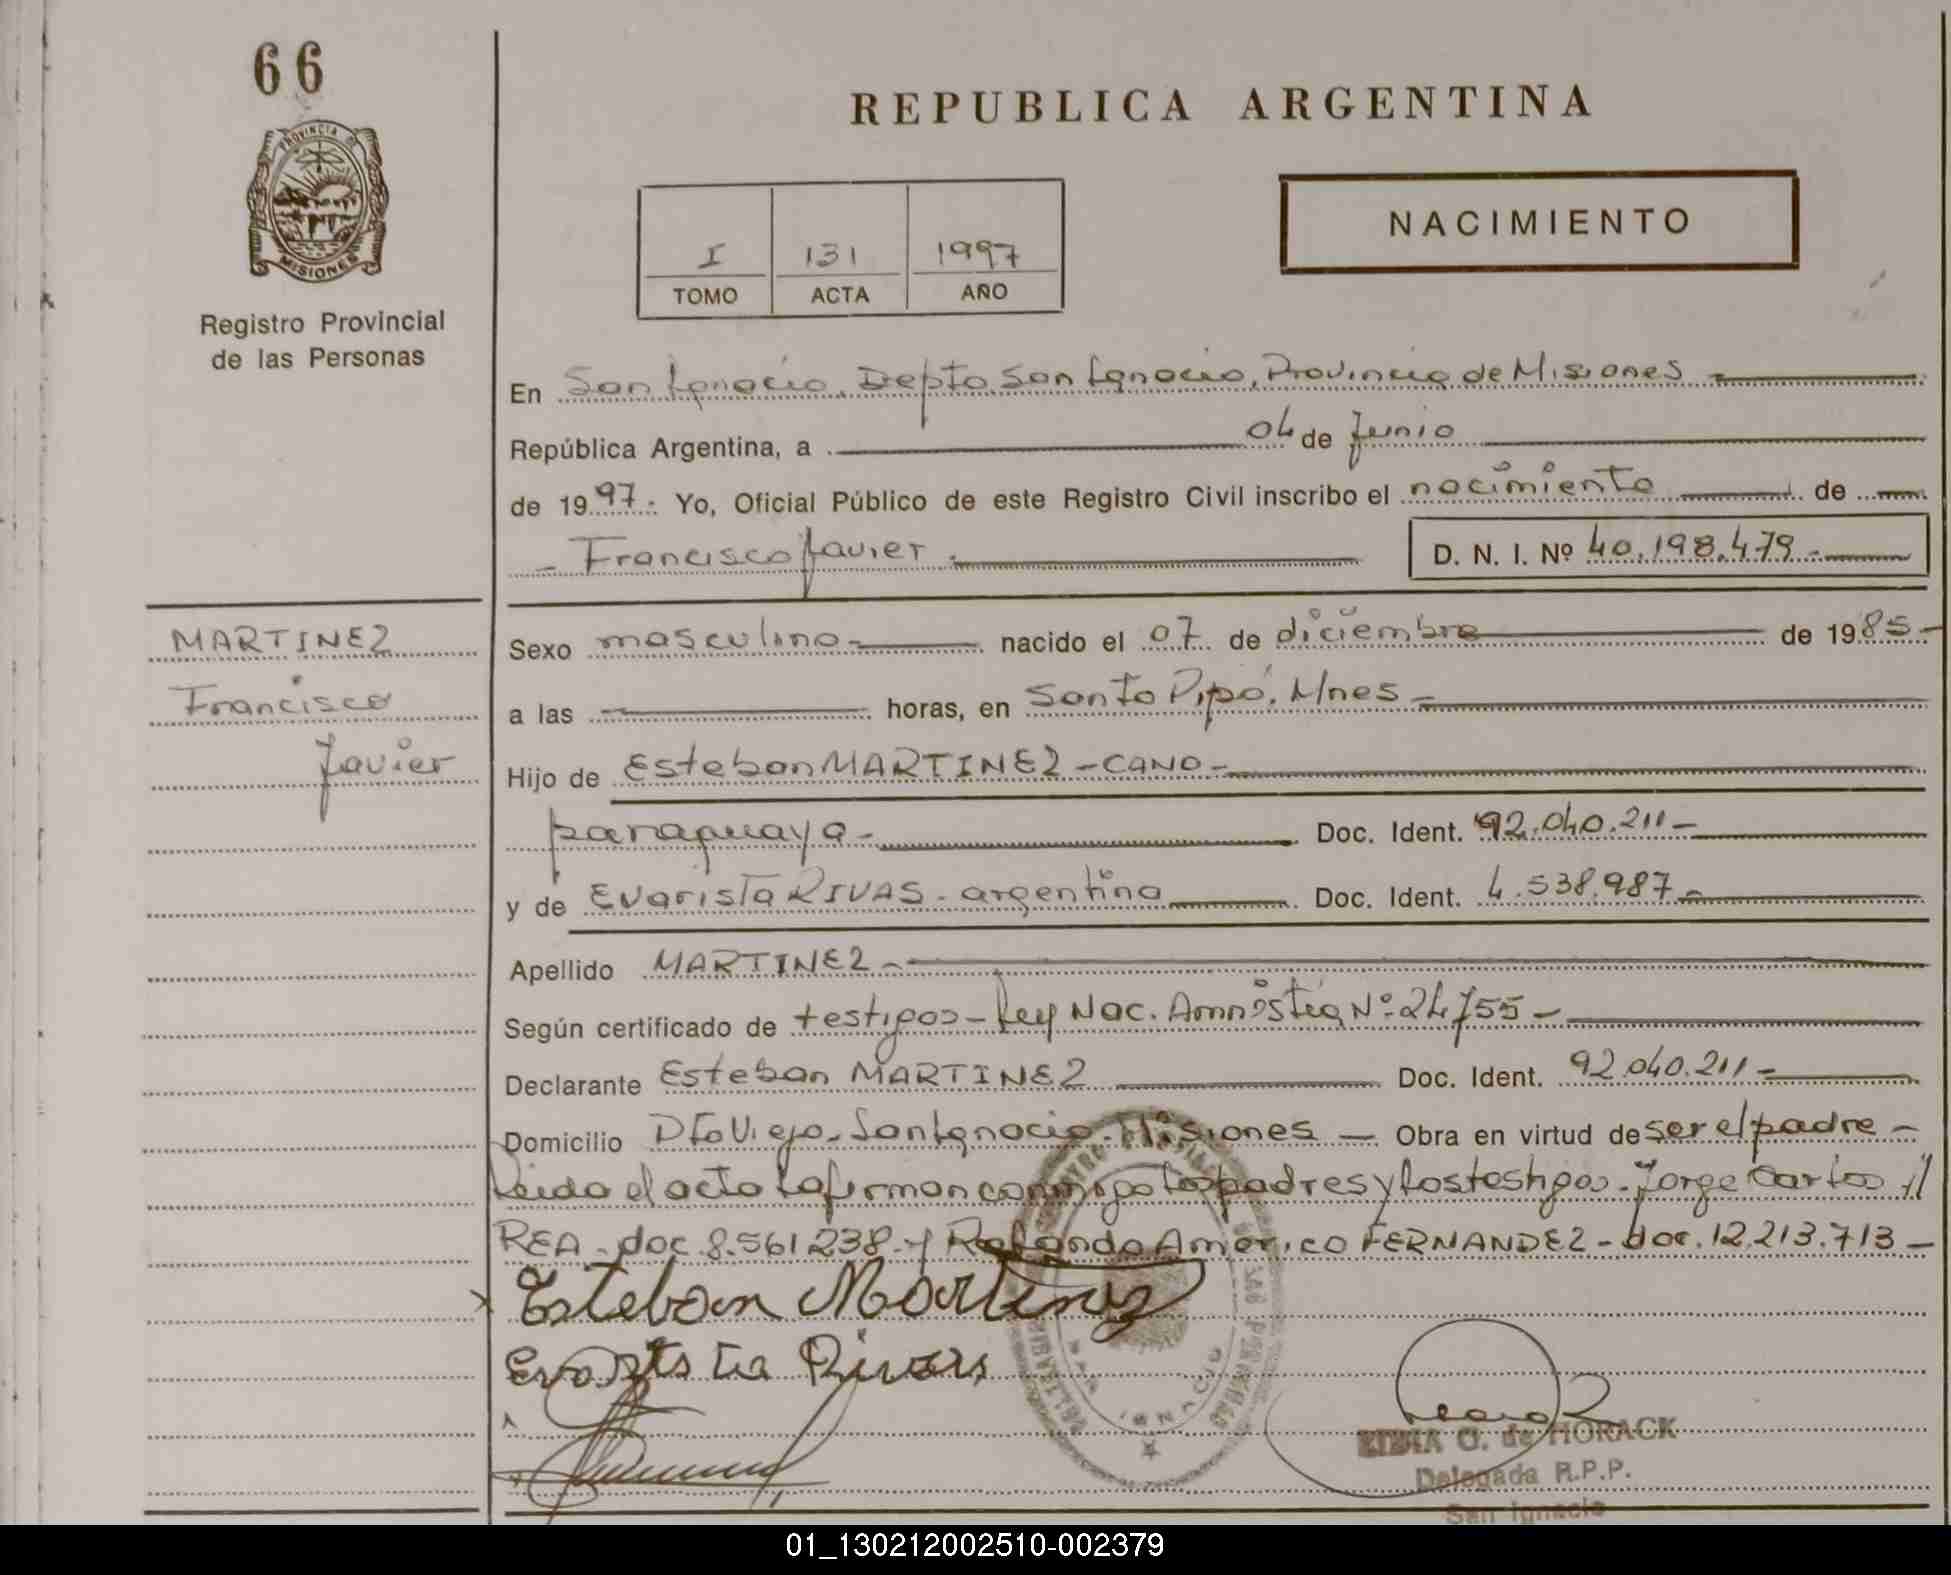 66
PROVINCIA DE
MISIONES
Registro Provincial
de las Personas
REPUBLICA ARGENTINA
NACIMIENTO
I 131 1997
TOMO ACTA AÑO
En San Ignacio, Depto San Ignacio, Provincia de Misiones
República Argentina, a 04 de Junio
de 1997. Yo, Oficial Público de este Registro Civil inscribo el nacimiento de
- Francisco Javier. D. N. I. Nº 40.198.479.-
MARTINEZ
Francisco
Javier
Sexo masculino- nacido el 07 de diciembre de 1985-
a las horas, en Santo Pipó. Mnes-
Hijo de Esteban MARTINEZ-CANO-
paraguaya- Doc. Ident. 92.040.211-
y de Evarista RIVAS. argentina Doc. Ident. 4.538.987-
Apellido MARTINEZ-
Según certificado de testigos-Ley Nac. Amnistía Nº 24755-
Declarante Esteban MARTINEZ Doc. Ident. 92.040.211-
Domicilio Pto Viejo-San Ignacio-Misiones - Obra en virtud de ser el padre-
Leida el acta la firman conmigo los padres y los testigos. Jorge Carlos
REA-doc. 8.561238-y Rolando Américo FERNANDEZ-doc. 12.213.713-
Esteban Martinez
Evarista Rivas
SAN IGNACIO
G. de HORACK
Delegada R.P.P.
San Ignacio
01_130212002510-002379